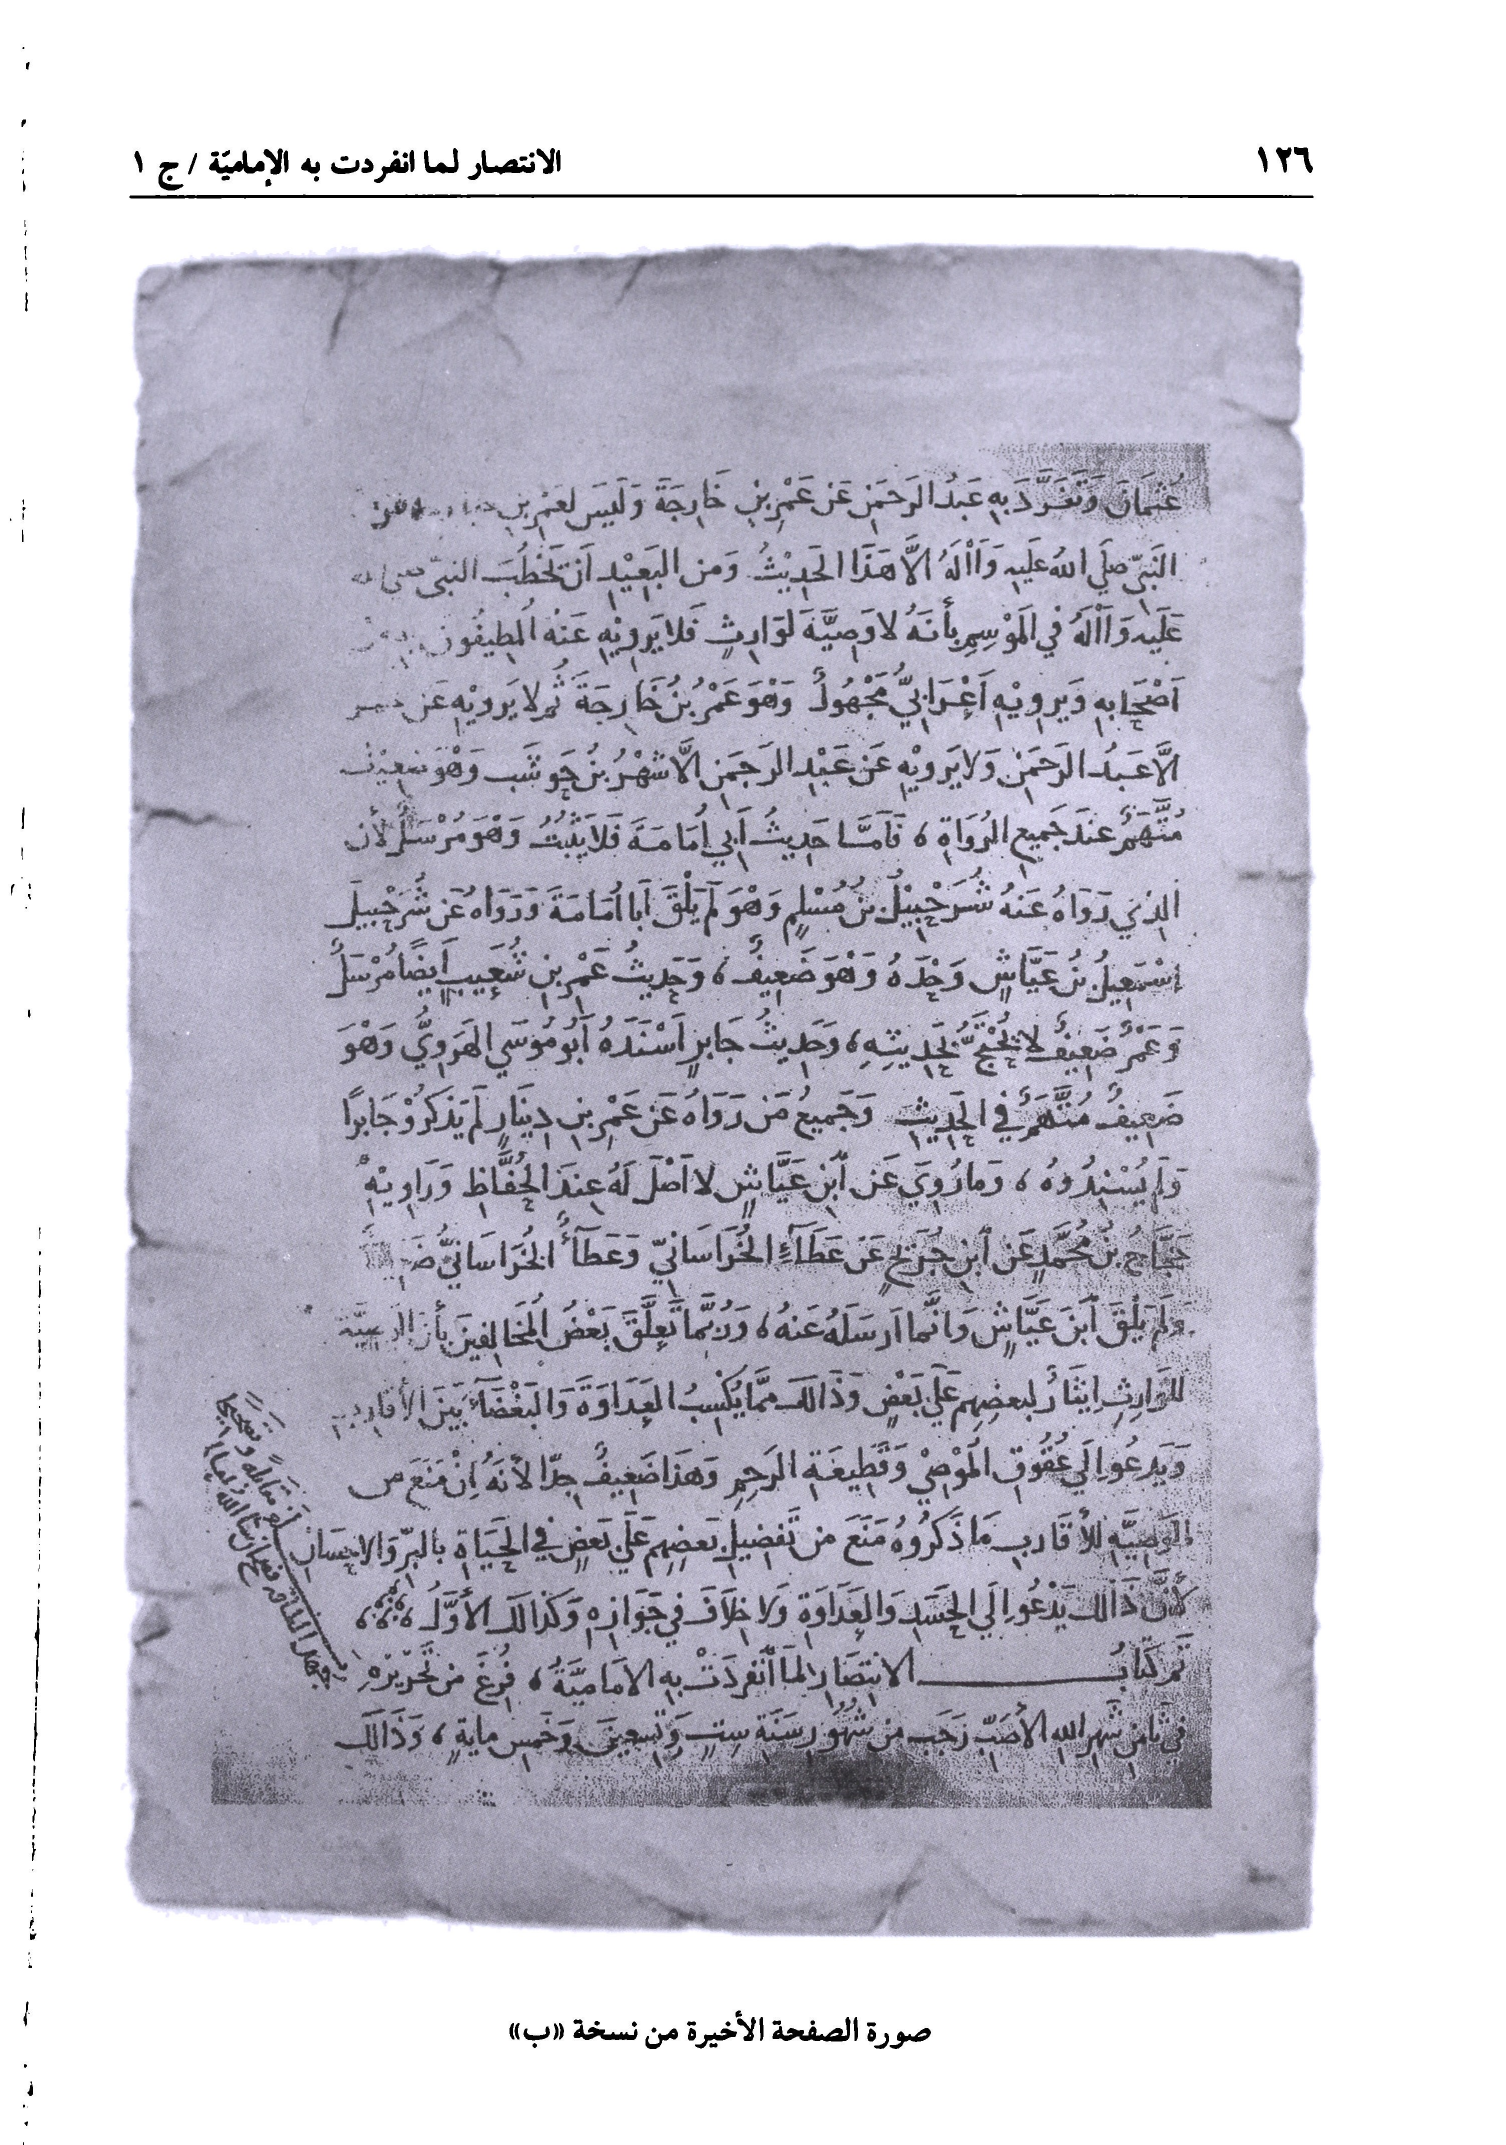 ١٢٦
الانتصار لما انفردت به الإماميّة / ج ١
عُثمَانَ وَتَفَرَّدَ بِهِ عَبدُ الرَحمَنِ عَن عَمْرِ بنِ خَارِجَةَ وَلَيسَ لعَمْرِ بنِ
النَبيّ صلَي الله علَيهِ وَاۤلهُ الاَّ هَذَا الحَديْثُ وَمن البَعيْدِ اَن يَخطُبَ النبيّ صلى الله
عَلَيهِ وَاۤلهُ في المَوْسِمِ بأنهُ لا وَصِيَّةَ لوَارِثٍ فَلا يَروِيْهِ عَنهُ المُطيفُون به من
اَصْحَابهِ وَيَروِيْهِ اَعْرَابيٌّ مَجْهُولٌ وَهْوَ عَمْرُ بنُ خَارِجَةَ ثُمَّ لا يَرويْهِ عَن عمر
الاَّ عَبدُ الرَحمَنِ وَلا يَرويْهِ عَن عَبْدِ الرَحمَنِ الاَّ شهْرُ بنُ حَوشَب وَهْوَ ضعِيْفٌ
مُتَّهَمٌ عندَ جَميعِ الرُوَاةِ ، فَأمَّا حَديثُ أبي أُمَامَةَ فَلا يَثبُتُ وَهْوَ مُرْسَلٌ لأن
الذي رَوَاهُ عَنهُ شُرَحْبِيْلُ بنُ مُسْلمٍ وَهْوَ لَم يَلْقَ اَبا اُمَامَةَ وَرَوَاه عَن شُرَحْبيلَ
اسْمَعِيلُ بنُ عَيَّاشٍ وَحْدَهُ وَهْوَ ضَعيفٌ ، وَحَديثُ عَمْرِ بنِ شُعَيبٍ اَيضًا مُرْسَلٌ
وَعَمْرٌ ضَعيفٌ لا يُحْتَجُّ بحَديثِهِ ، وَحَديثُ جَابرٍ اَسْنَدَهُ اَبُو مُوسَي الهَرَويُّ وَهْوَ
ضَعِيفٌ مُتَّهَمٌ في الحَديثِ وَجَميعُ مَن رَوَاهُ عَن عَمْرِ بنِ دِينَارٍ لَم يَذكرُوْ جَابرًا
وَلَم يُسْنِدُوهُ ، وَمَا رُويَ عَن ابْنِ عَيَّاشٍ لا اَصْلَ لَهُ عِندَ الحُفَّاظِ وَرَاوِيْهِ
حَجَّاجُ بنُ مُحَمَّدٍ عَن ابنِ جُرَيجٍ عَن عَطَآءِ الخُرَاسَانيّ وَعَطَآءُ الخُرَاسَانيُّ
وَلَم يَلْقَ ابْنَ عَيَّاشٍ وَانَّما ارسَلَهُ عَنهُ ، وَرُبَّما تَعلَّقَ بَعْضُ المُخَالِفينَ بأن الوصيَّة
للوَارِثِ ايثَارٌ لبعضِهِم عَلَي بَعْضٍ وَذَالكَ ممَّا يُكْسِبُ العَدَاوَةَ وَالبَغْضَآءَ بَينَ الأقاربِ
وَيَدعُو الَي عُقُوقِ المُوصْيِ وَقَطِيعَةِ الرَحِمِ وَهَذَا ضَعِيفٌ جدّا لأنهُ اِنْ مَنَعَ من
الوَصِيَّهِ للأَقَارِبِ مَا ذَكَرُوهُ مَنَعَ من تَفضيلِ بَعضِهِم عَلَي بَعضٍ في الحَيَاةِ بالبرّ وَالاحسَانِ
لأَنَّ ذَالكَ يَدْعُو الَي الحَسَدِ وَالعَدَاوَةِ وَلا خِلاَفَ في جَوَازِهِ وَكَذَالكَ الأوَّلُ
تَم كتَابُ الانتِصَارِ لمَا انْفرَدَتْ بهِ الامَاميَّةُ ، فُرِغَ من تَحْرِيْرِهِ
في ثامنِ شَهرِ اللهِ الأصَبّ رَجَب من شُهُورِ سَنَةِ ستٍ وَتسعينَ وَخَمسِ مايةٍ ، وَذَالكَ
صورة الصفحة الأخيرة من نسخة «ب»